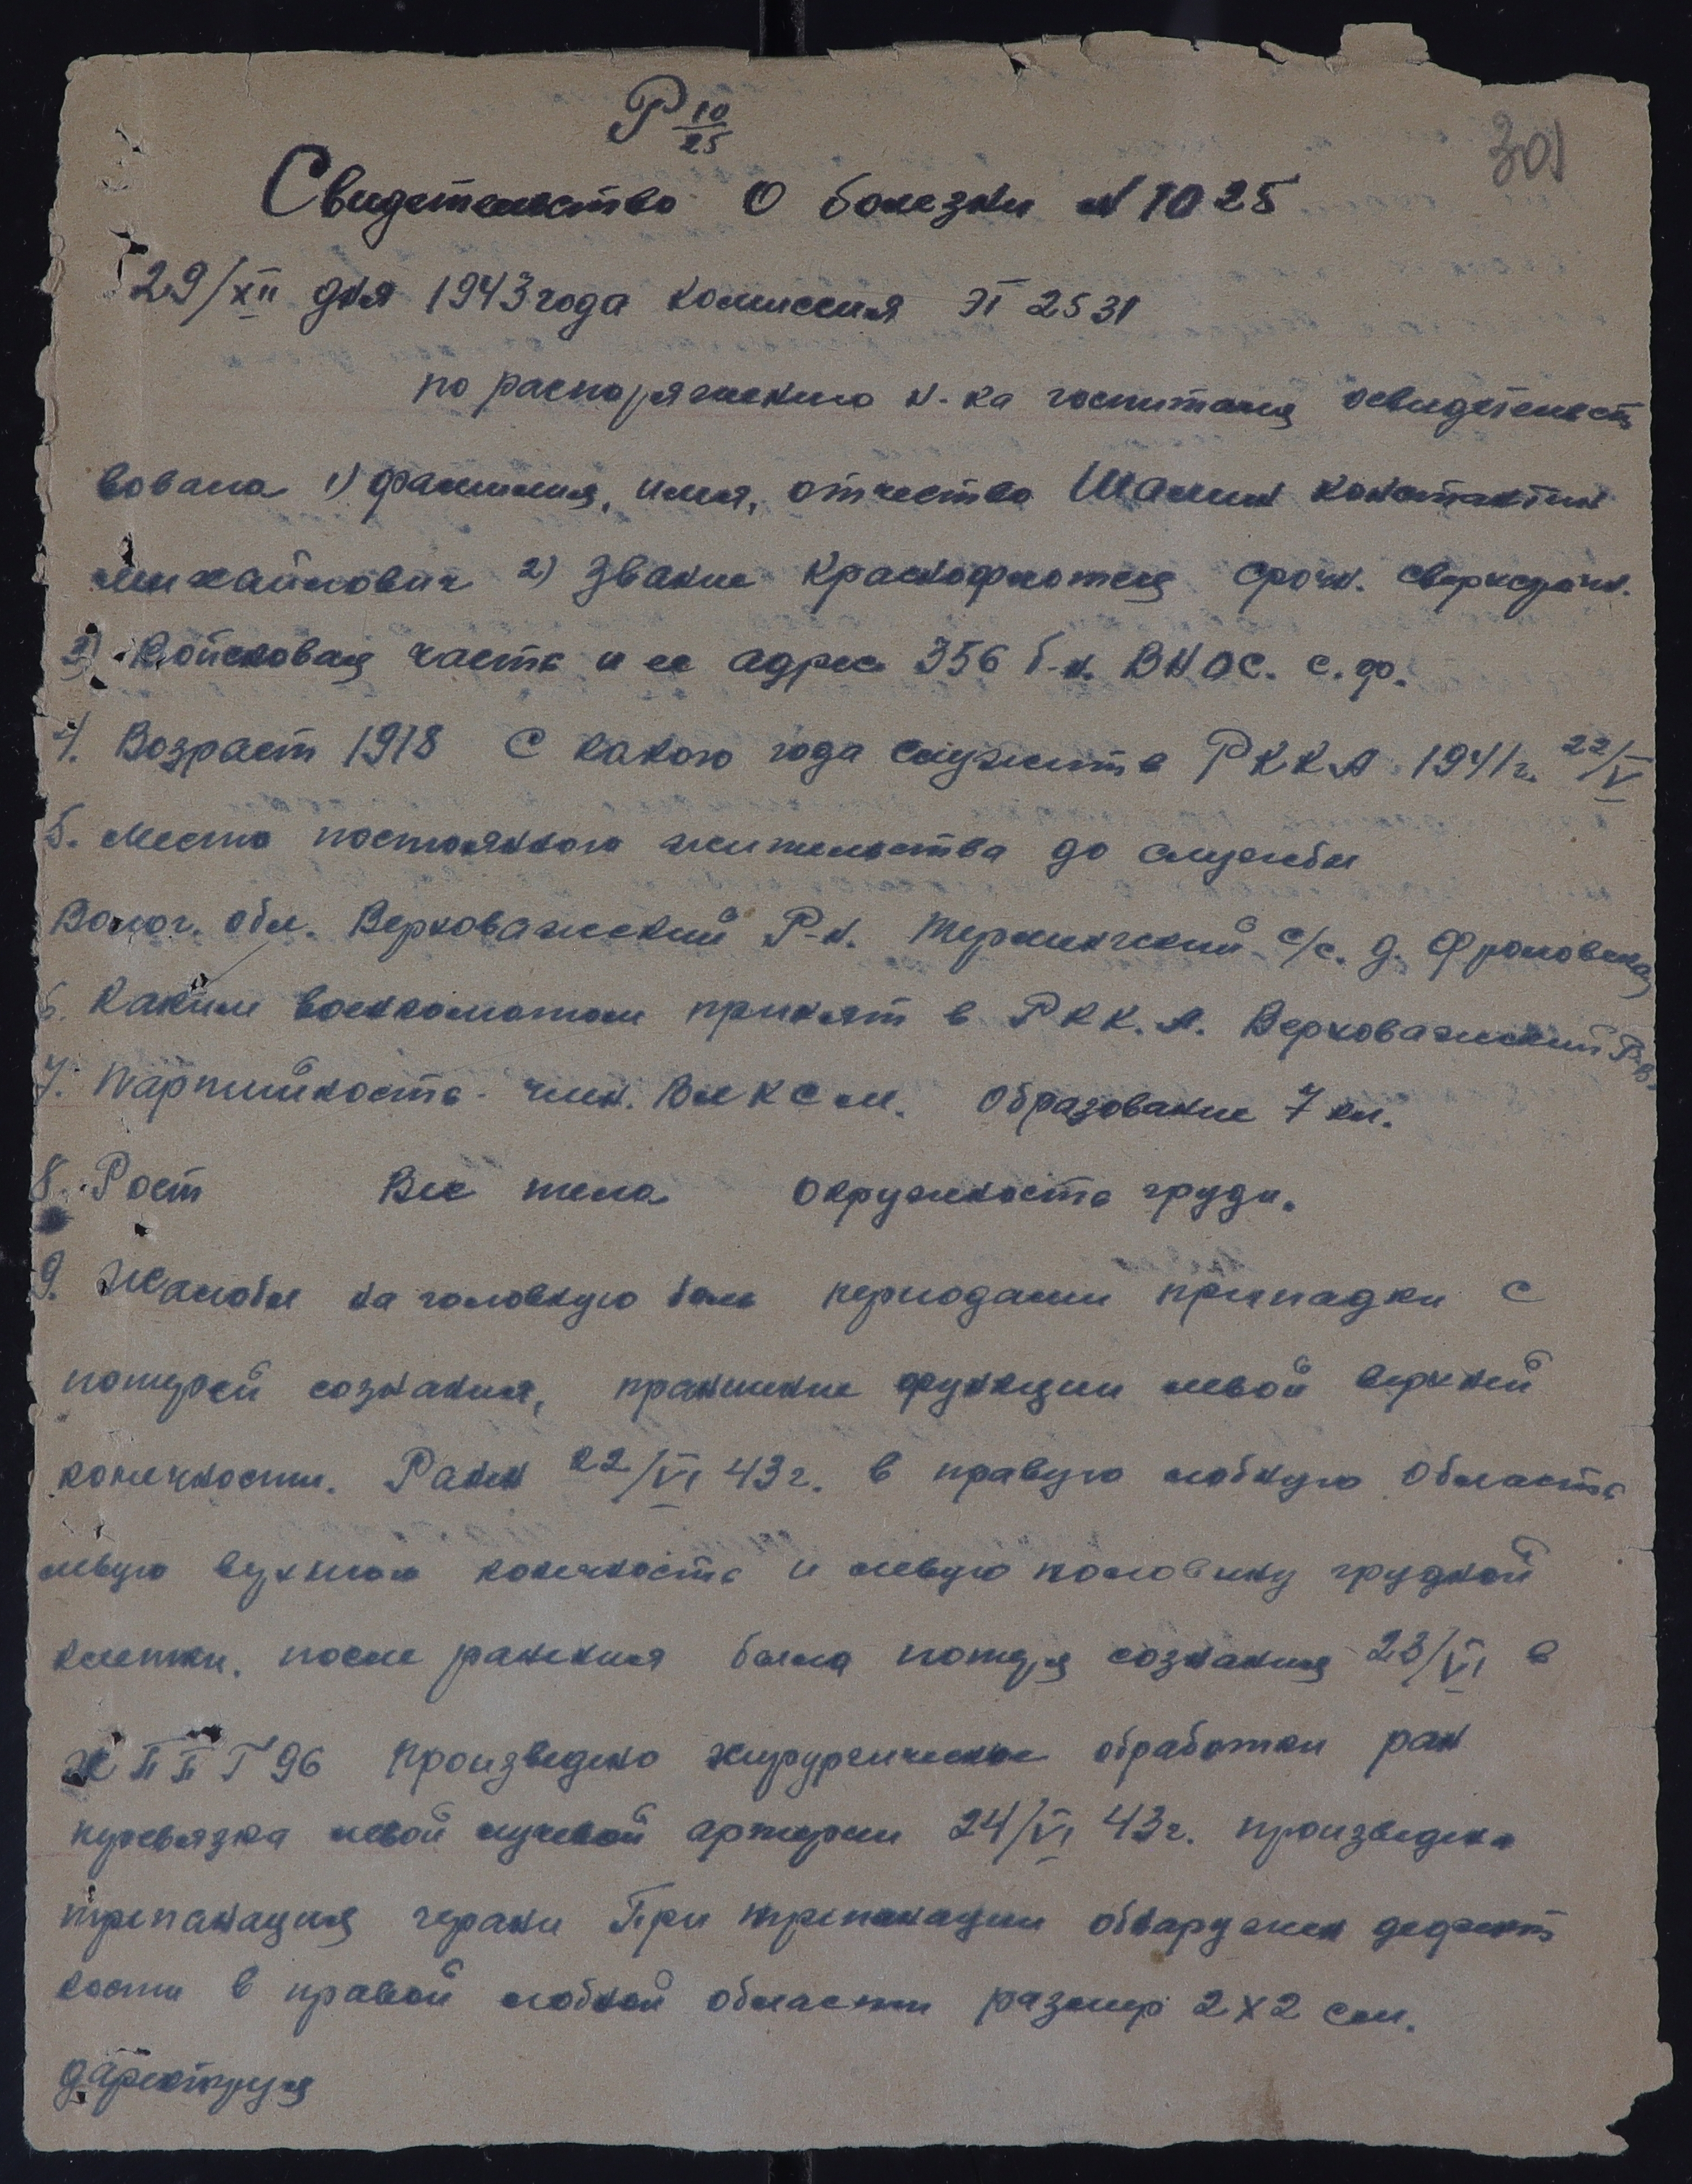 Р 10/25
301
Свидетельство о болезни N 1025
29/XII дня 1943 года комиссия ЭГ 2531
по распоряжению н-ка госпиталя освидетельст
вована 1) фамилия, имя, отчество Шамин Константин
Михайлович 2) Звание краснофлотец срочн. сверхсрочн.
3) Войсковая часть и ее адрес 356 б-н. ВНОС. с.ф.
4. Возраст 1918 С какого года служить РККА 1941 г. 22/V
5. Место постоянного жительства до службы
Волог. обл. Верховажский Р-н. Терминский с/с. д. Фроловская
6. Каким военкоматом принят в РКК.А. Верховажский Р.В.
7. Партийность член. ВЛКСМ. Образование 7 кл.
8. Рост Вес тела Окружность груди.
9. Жалобы на головную боль периодами припадки с
потерей сознания, пранение функции левой верхней
конечности. Ранен 22/VI 43 г. в правую лобную область
левую верхнюю конечность и левую половину грудной
клетки. после ранения была потеря сознания 23/VI в
ППГ 96 произведено хирургическое обработки ран
перевязка левой лучевой артерии 24/VI 43 г. произведена
трепанация черапи При трепанации обнаружен дефект
кости в правой лобной области размер 2х2 см.